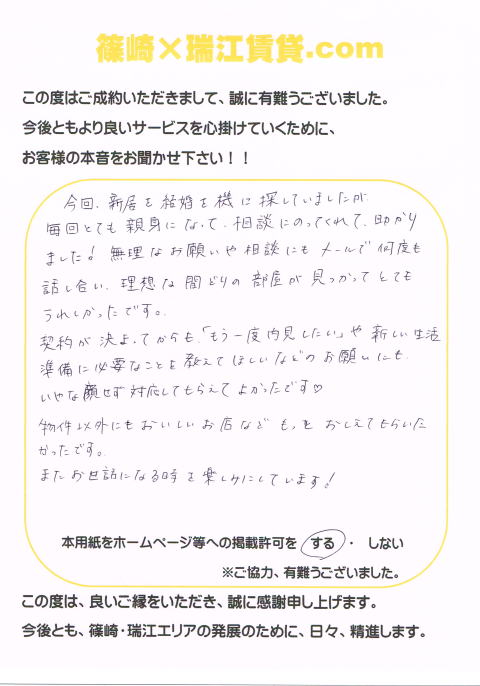 篠崎×瑞江賃貸.com
この度はご成約いただきまして、誠に有難うございました。
今後ともより良いサービスを心掛けていくために、
お客様の本音をお聞かせ下さい！！
今回、新居を結婚を機に探していましたが
毎回とても親身になって、相談にのってくれて、助かり
ました！無理なお願いや相談にもメールで何度も
話し合い、理想な間どりの部屋が見つかってとても
うれしかったです。
契約が決まってからも、「もう一度内見したい」や新しい生活
準備に必要なことを教えてほしいなどのお願いにも、
いやな顔せず対応してもらえてよかったです♡
物件以外にもおいしいお店なども、もっとおしえてもらいた
かったです。
またお世話になる時を楽しみにしています！
本用紙をホームページ等への掲載許可を する ・ しない
※ご協力、有難うございました。
この度は、良いご縁をいただき、誠に感謝申し上げます。
今後とも、篠崎・瑞江エリアの発展のために、日々、精進します。